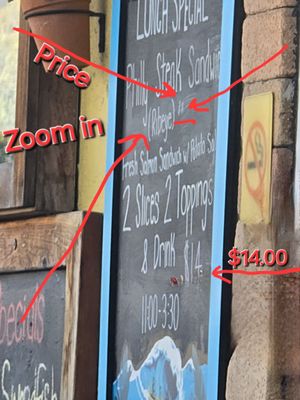 LUNCH SPECIAL
Philly Steak Sandwich
Price
(Ribeye)
Zoom in
Fresh Salmon Sandwich w/ Potato Sal
2 Slices 2 Toppings
& Drink $14
$14.00
11:00-3:30
pecials